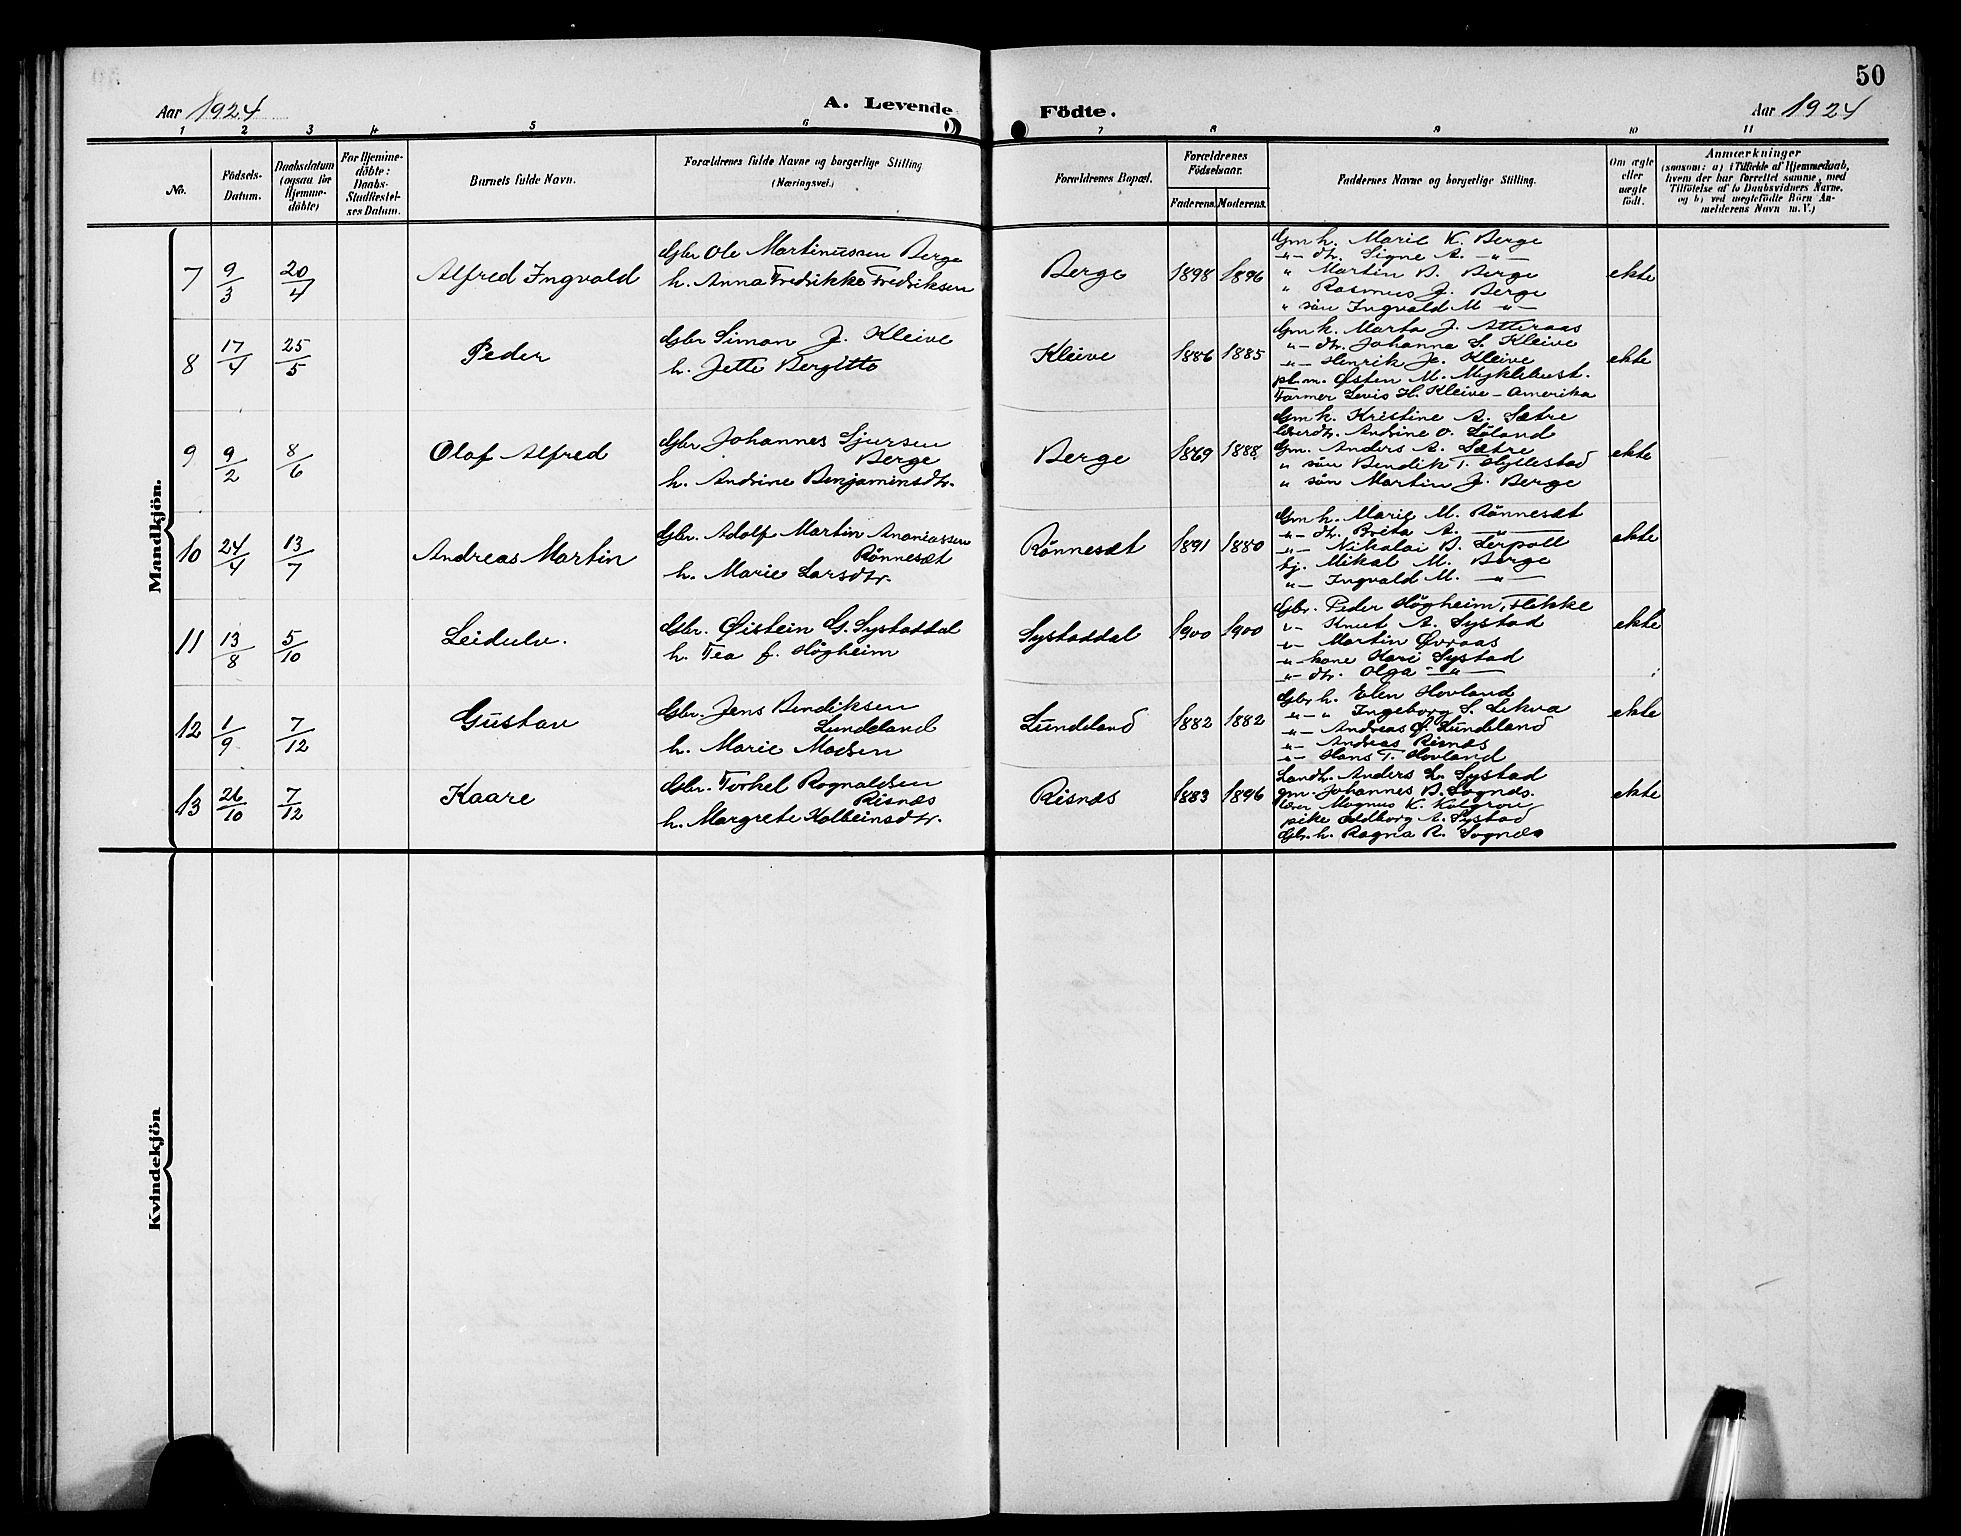 50
Aar 1924 A. Levende Födte. Aar 1924
1 2 3 4 5 6 7 8 9 10 11
No. Födsels-Datum. Daabsdatum (ogsaa for Hjemme-döbte) For Hjemme-döbte: Daabs-Stadfæstel-ses Datum. Barnets fulde Navn. Forældrenes fulde Navne og borgerlige Stilling (Næringsvei.) Forældrenes Bopæl. Forældrenes Födselsaar. Faderens. Moderens. Faddernes Navne og borgerlige Stilling. Om ægte eller uægte födt. Anmærkninger (saasom: a) i Tilfælde af Hjemmedaab, hvem der har forrettet samme, med Tilföielse af to Daabsvidners Navne, og b) ved uægtefödte Börn An-melderens Navn m. V.)
Mandkjön.
7 9/3 20/4 Alfred Ingvald
Gbr Ole Martinussen Berge
h. Anna Fredrikke Fredriksen
Berge 1898 1896
Gm h. Marie K. Berge
-"- dtr. Signe A. -"-
" Martin B. Berge
" Rasmus J. Berge
" sön Ingvald M -"-
ekte
8 17/4 25/5 Peder
Gbr Simon J. Kleive
h. Jette Bergitte
Kleive 1886 1885
Gm k. Marta J. Atteraas
-"- dtr. Johanna S. Kleive
-"- Henrik Je. Kleive
pl.m. Østen M. Myklebust.
Farmer Levis H. Kleive - Amerika
ekte
9 9/2 8/6 Olaf Alfred
Gbr Johannes Sjursen
Berge
h. Andrine Benjaminsdtr.
Berge 1869 1888
Gm k. Kristine A. Sætre
Andrine O. Söland
Gm. Anders A. Sætre
" sön Bendik T. Hyllestad
" sön Martin J. Berge
ekte
10 24/4 13/7 Andreas Martin
Gbr. Adolf Martin Ananiassen
Rönnesæt
h. Marie Larsdtr.
Rönnesæt 1891 1880
Gm h. Marie M. Rönnesæt
-"- dtr. Breta A. -"-
-"- Nikolai B. Lerpoll
tj. Mikal M. Berge
-"- Ingvald M. -"-
ekte
11 13/8 5/10 Leidulv.
Gbr. Øistein G. Systaddal
h. Tea f. Högheim
Systaddal 1900 1900
Gbr. Peder Högheim, Flekke
-"- Knut A. Systad
-"- Martin Øvraas
-"- kone Kari Systad
-"- dtr. Olga -"-
ekte
12 1/9 7/12 Gustav
Gbr. Jens Bendiksen
Lundeland
h. Marie Madsen
Lundeland 1882 1882
Gbr h. Elen Hovland
-"- " Ingeborg S. Lekva
-"- Andreas Ø. Lundeland
-"- Andreas Risnæs
-"- Hans T. Hovland
ekte
13 26/10 7/12 Kaare
Gbr. Torkel Rognaldsen
Risnæs
h. Margrete Kolbeinsdtr.
Risnæs 1883 1896
Landh. Anders L. Systad
gm. Johannes B. Sognæs.
lærer Magnus K. Kolgrov
pike Oddborg A. Systad
Gbr. h. Ragna R. Sognæs
ekte
Kvindekjön